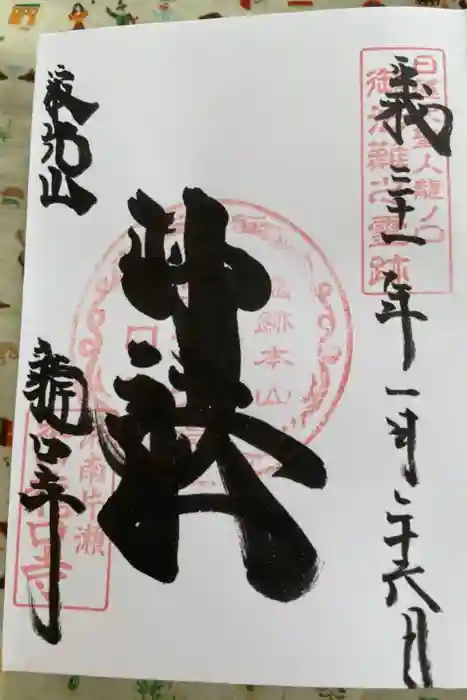 日蓮大聖人龍ノ口
御法難之霊跡
平成三十一年一月二十六日
妙法
霊跡本山
寂光山
龍口寺
湘南片瀬
龍口寺